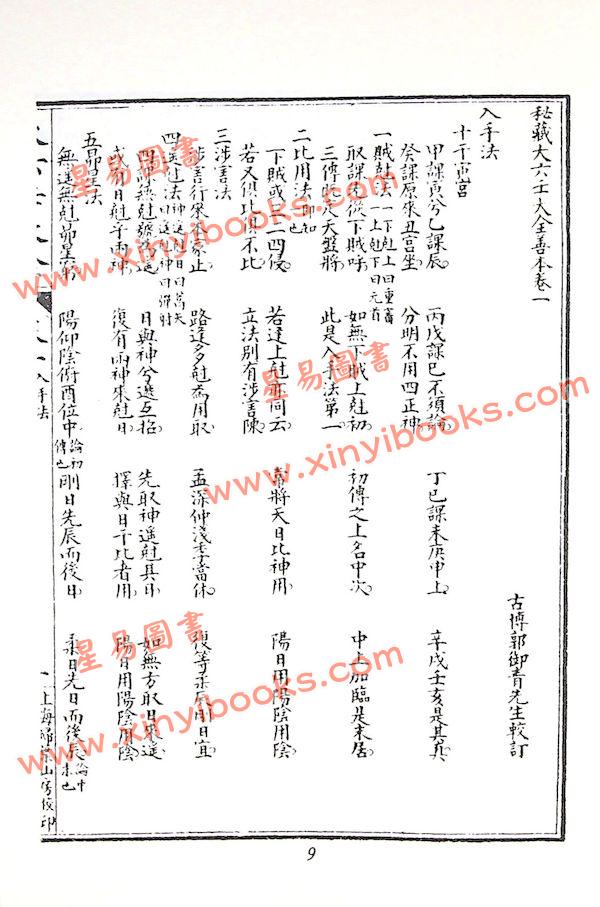 秘藏大六壬大全善本卷一
古博郭御青先生較訂
入手法
十干重宮
甲課寅兮乙課辰 丙戊課巳不須論 丁巳課未庚申上 辛戌壬亥是其真
癸課原來丑宮坐 分明不用四正神
一賊尅法 一下尅上曰重審 一上尅下曰元首
取課先從下賊呼 如無下賊上尅初 初傳之上名中次 中上加臨是末居
三傳 是天盤將 此是入手法第一
二比用法 即知一也
下賊或三二四侵 若逢上尅亦同云 常將天日比神用 陽日用陽陰用陰
若又俱比俱不比 立法別有涉害陳
三涉害法
涉害行來本家止 路逢多尅為用取 孟深仲淺季當休 復等柔辰剛日宜
四遙尅法 神遙尅日曰蒿矢 日遙尅神曰彈射
四課無尅號為遙 日與神兮遞互招 先取神遙尅其日 如無方取日來遙
或有日尅乎兩神 復有兩神來尅日 擇與日干比者用 陽日用陽陰用陰
五昴星法
無遙無尅昴星窮 陽仰陰俯酉位中 論初傳也 剛日先辰而後日 柔日先日而後辰 論中末也
入手法
上海掃葉山房校印
9
星易圖書
www.xinyibooks.com
星易圖書
www.xinyibooks.com
星易圖書
www.xinyibooks.com
星易圖書
www.xinyibooks.com